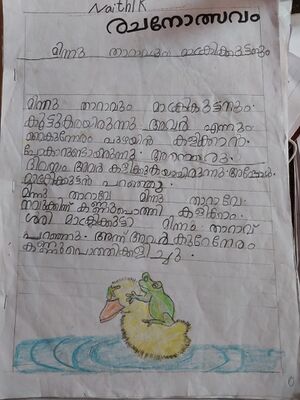 Naithik
രചനോത്സവം
മിന്നു താറാവും മാക്രിക്കുട്ടനും
മിന്നു താറാവും മാക്രികുട്ടനും
കൂട്ടുകാരായിരുന്നു അവർ എന്നും
വൈകുന്നേരം പുഴയിൽ കളിക്കാൻ
പോകാറുണ്ടായിരുന്നു. അങ്ങനെ ഒരു
ദിവസം അവർ കളിക്കുകയായിരുന്നു അപ്പോൾ
മാക്രിക്കുട്ടൻ പറഞ്ഞു.
മിന്നു താറാവേ മിന്നു താറാവേ
നമുക്കിന്ന് കണ്ണുപൊത്തി കളിക്കാം.
ശരി മാക്രിക്കുട്ടാ മിന്നം താറാവ്
പറഞ്ഞു. അന്ന് അവർ കുറേനേരം
കണ്ണുപൊത്തികളിച്ചു.